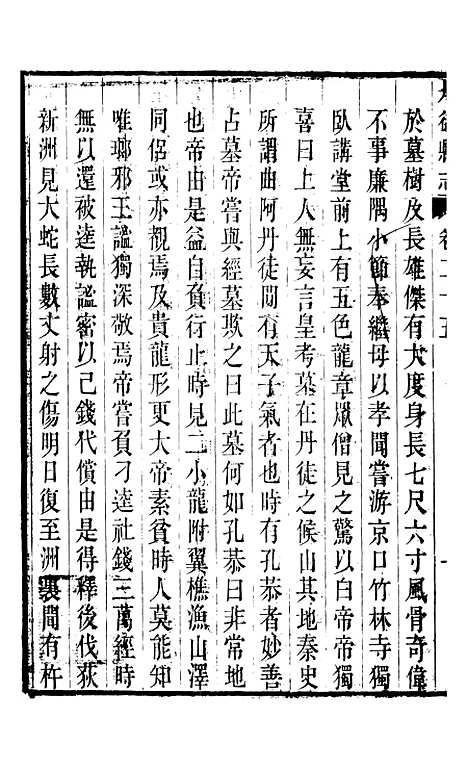 丹徒縣志 卷二十五
於墓樹及長雄傑有大度身長七尺六寸風骨奇偉
不事廉隅小節奉繼母以孝聞嘗游京口竹林寺獨
臥講堂前上有五色龍章眾僧見之驚以白帝帝獨
喜曰上人無妄言皇考墓在丹徒之候山其地秦史
所謂曲阿丹徒間有天子氣者也時有孔恭者妙善
占墓帝嘗與經墓欺之曰此墓何如孔恭曰非常地
也帝由是益自負行止時見二小龍附翼樵漁山澤
同侶或亦覩焉及貴龍形更大帝素貧時人莫能知
唯瑯邪王謐獨深敬焉帝嘗負刁逵社錢三萬經時
無以還被逵執謐密以己錢代償由是得釋後伐荻
新洲見大蛇長數丈射之傷明日復至洲裏聞有杵